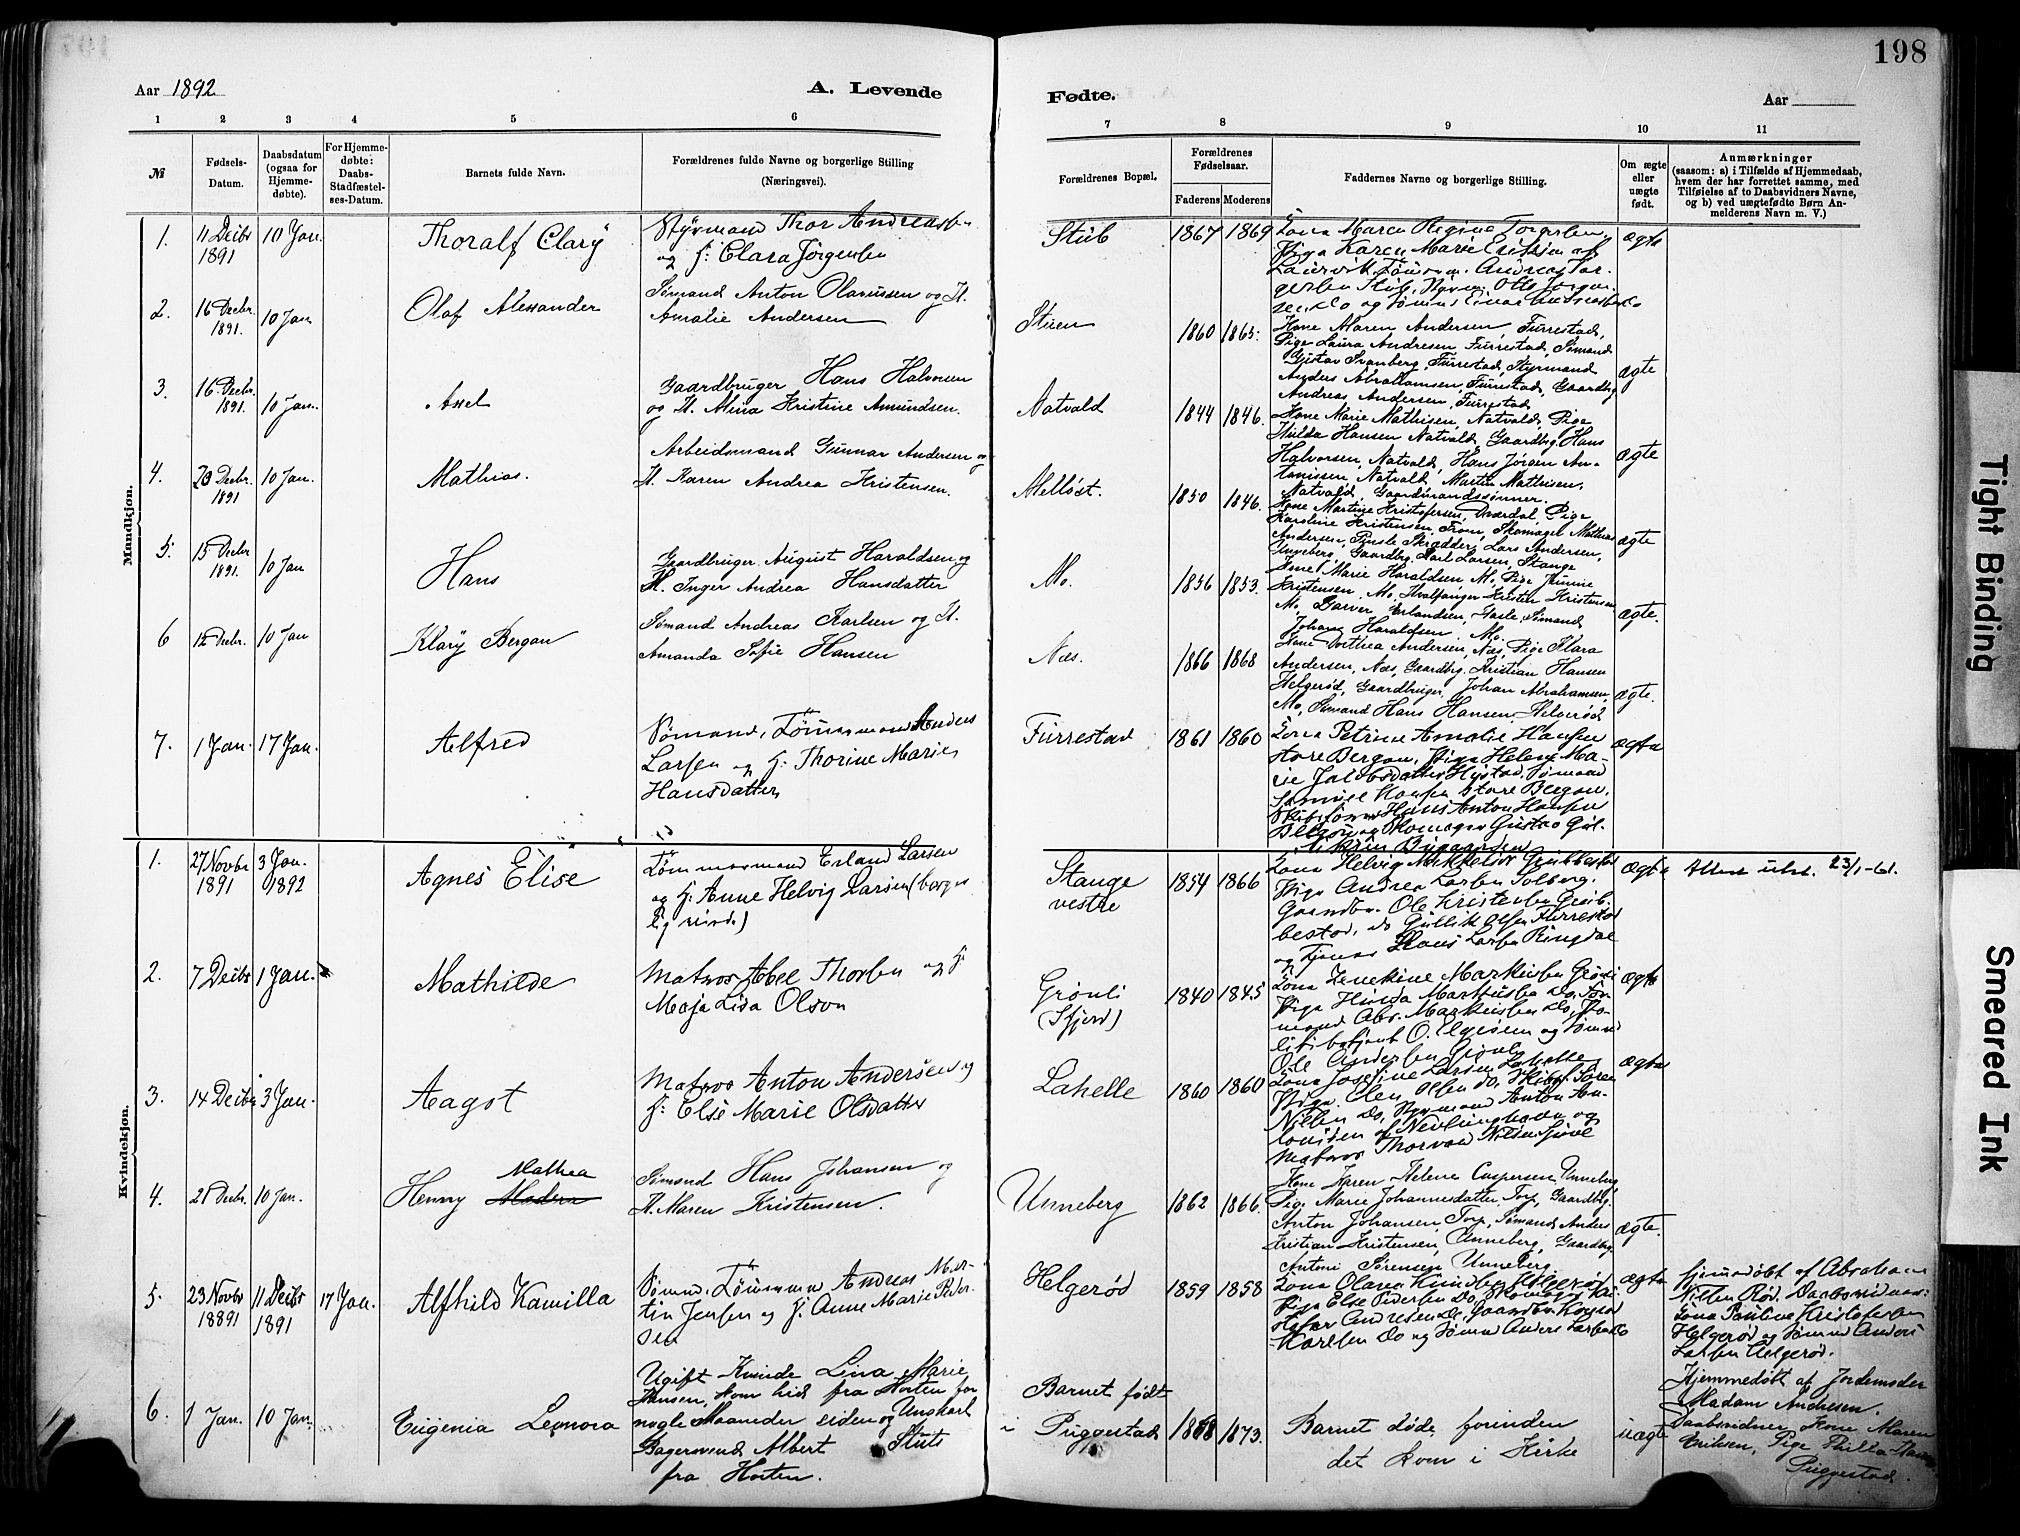 198
Aar 1892
A. Levende
Fødte.
Aar
1 2 3 4 5 6 7 8 9 10 11
№
Fødsels-
Datum.
Daabsdatum
(ogsaa for
Hjemme-
døbte).
For Hjemme-
døbte:
Daabs-
Stadfæstel-
ses-Datum.
Barnets fulde Navn.
Forældrenes fulde Navne og borgerlige Stilling
(Næringsvei).
Forældrenes Bopæl.
Forældrenes
Fødselsaar.
Faderens Moderens
Faddernes Navne og borgerlige Stilling.
Om ægte
eller
uægte
født.
Anmærkninger
(saasom: a) i Tilfælde af Hjemmedaab,
hvem der har forrettet samme, med
Tilføielse af to Daabsvidners Navne,
og b) ved uægtefødte Børn An-
melderens Navn m. V.)
Mandkjøn.
1. 11 Decbr 1891 10 Jan. Thoralf Clary
Styrmand Thor Andreassen
og H. Clara Jörgensen
Stüb 1867 1869
Kona Maren Regine Torgersen,
Pige Karen Marie
ægte
2. 16 Decbr. 1891. 10 Jan Olaf Alexander
Sømand Anton Olaussen og H.
Amalie Andersen
Stuen 1860 1865.
Kone Maren Andersen, Furrestad,
Pige Laura Andresen Furrestad, Sømand
Gustav Svanberg, Furrestad, Styrmand
Anders Abrahamsen, Furrestad, Gaardbg
Andreas Andersen, Furrestad
ægte
3. 16 Decbr. 1891. 10 Jan. Axel
Gaardbruger Hans Halvorsen
og H. Mina Kristine Amundsen.
Natvald 1844 1846.
Kone Marie Mathisen, Natvald, Pige
Hulda Hansen Natvald, Gaardbg. Hans
Halvorsen, Natvald, Hans Jörgen An-
tonissen, Natvald, Martin Mathisen,
Natvald, Gaardmandssønner.
ægte
4. 23 Decbr. 1891 10 Jan. Mathias.
Arbeidsmand Gunnar Andersen og
H. Karen Andrea Kristensen.
Melløst. 1850 1846.
Kone Martine Kristofersen, Dværdal, Pige
Karoline Kristensen, From, Skomager Mathias
Andersen, Skrædder Lars Andersen,
Unneberg, Gaardbg. Karl Larsen, Stange
ægte
5. 15 Decbr 1891. 10 Jan Hans
Gaardbruger August Haraldsen og
H. Inger Andrea Hansdatter
Mo. 1856 1853.
Kone Marie Haraldsen, Mo, Pige
Kristensen, Mo, Hvalfanger Kristen Kristensen
Mo, Garver Erlandsen, Sømand
Johan Haraldsen. Mo.
ægte.
6 12 Decbr. 10 Jan Klary Bergan
Sømand Andreas Karlsen og H.
Amanda Sofie Hansen
Næs. 1866 1868
Kone Dorthea Andersen, Næs, Pige Klara
Andersen, Næs, Gaardbg. Kristian Hansen
Helgerød, Gaardbruger, Johan Abrahamsen,
Mo, Sømand Hans Hansen, Helgerød
ægte.
7. 1 Jan. 17 Jan. Alfred
Sømand, Tömmermand Anders
Larsen og H. Thorine Marie
Hansdatter
Fürrestad 1861 1860
Kona Petrine Amalie Hansen
Store Bergan, Pige Helene Ma-
rie Jakobsdatter
Store Bergan,
Hans Anton Hansen
Skomager Gustav
ægte
Kvindekjøn.
1. 27 Novbr 1891 3 Jan. 1892 Agnes Elise
Tömmermand Erland Larsen
og H. Anne Helvig Larsen (borger-
lig viede)
Stange
vestre 1854 1866
Kona Helvig Mikkelsen
Pige Andrea Larsen Solberg,
Gaardbr. Ole Kristensen Grub-
bestad, do Gullik Olsen Fürrestad
og Hans Larsen Ringdal
ægte
Attest utst. 23/1-61.
2. 7 Decbr 1 Jan. Mathilde
Matros Abel Thorsen og H
Maja Lisa Olson
Grönli
(Sfjord) 1840 1845
ægte
3. 14 Decbr 3 Jan. Aagot
Matros Anton Andersen og
H. Else Marie Olsdatter
Lahelle 1860 1860
Kona Josefine Larsen Lahelle
Pige Elen Olsen do,
Nilsen do, Styrmand Anton An-
tonisen af Nevlunghavn og
Matros Thorvald Nilsen
ægte
4. 21 Decbr. 10 Jan. Henny Madea Mathea
Sømand Hans Johansen og
H. Maren Kristensen.
Unneberg 1862 1866.
Kone Karen Helene Caspersen, Unneberg,
Pige Marie Johannesdatter Torp, Gaardbg.
Anton Johansen, Torp, Sømand Anders
Kristian Kristensen, Unneberg, Gaardbg.
Antoni Sörensen Unneberg
ægte.
5. 23 Novbr 18891 11 Decbr 1891 17 Jan. Alfhild Kamilla
Sömd. Tömmrm Andreas Mar-
tin Jensen og H. Anne Marie Peder-
sen
Helgerød 1859 1858
Kona Olava Helgerød
Pige Else Pedersen do, Skomager Kri-
stofer Andresen do, Gaardbr.
Karlsen do og Sömd Anders Larsen do
ægte
Hjemmedöbt af Abraham
Nilsen Röd. Daabsvidner:
Kona Pauline Kristofersen
Helgeröd og Sömd Anders
Larsen Helgeröd.
6. 1 Jan. 10 Jan. Eugenia Leonora
Ugift Kvinde Lina Marie
Hansen, kom hid fra Horten for
nogle Maaneder siden og Ungkarl
Bagersvend Albert Stuts
fra Horten.
Barnet født
i Puggestad 1868 1873.
Barnet døde forinden
det kom i Kirke
uægte
Hjemmedöbt af Jordemoder
Madam Andresen.
Daabsvidner, Kone Maren
Eriksen, Pige
Puggestad.
Tight Binding
Smeared Ink